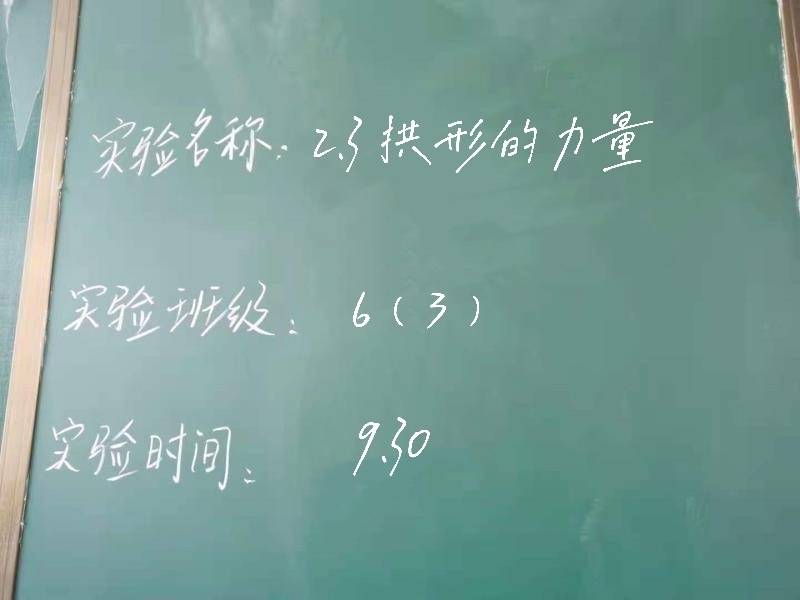 实验名称：2.3 拱形的力量
实验班级：6（3）
实验时间：9.30